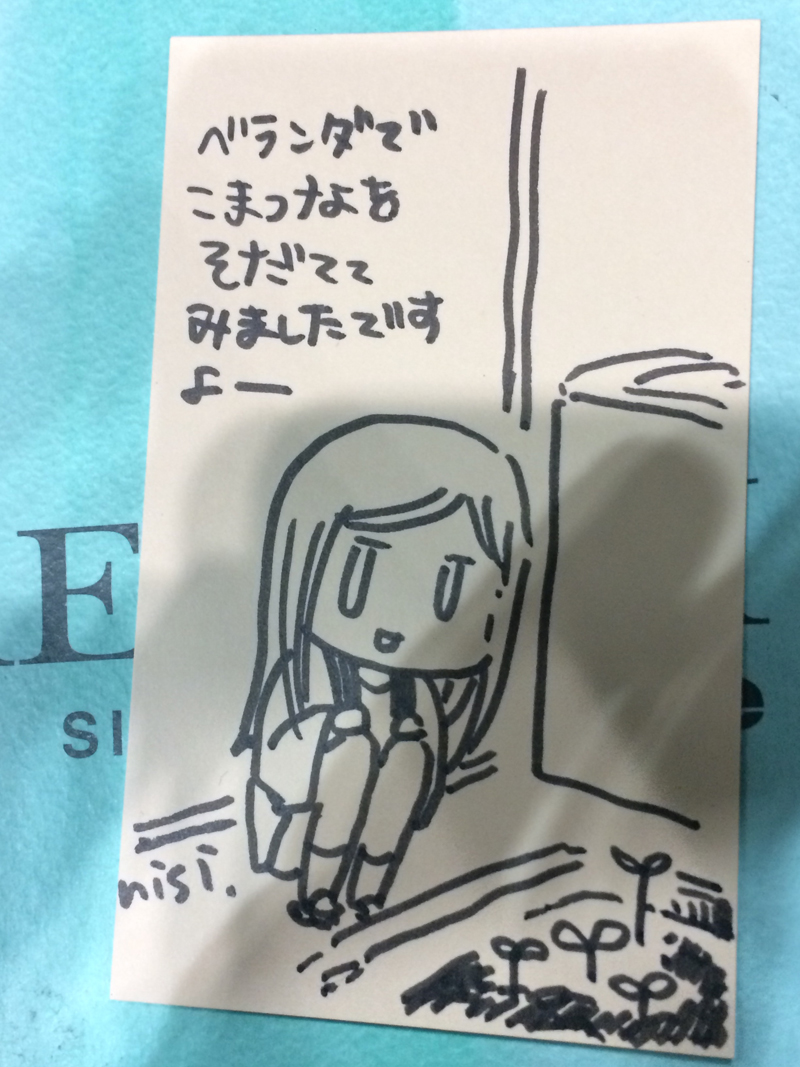 ベランダで
こまつなを
そだてて
みましたです
よー
nisi.
E
SI